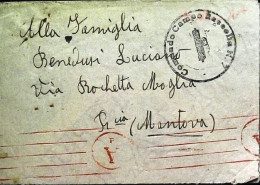 Alla Famiglia
Benedusi Luciano
Via Rochetta Moglia
(Mantova)
Comando Campo
A
A